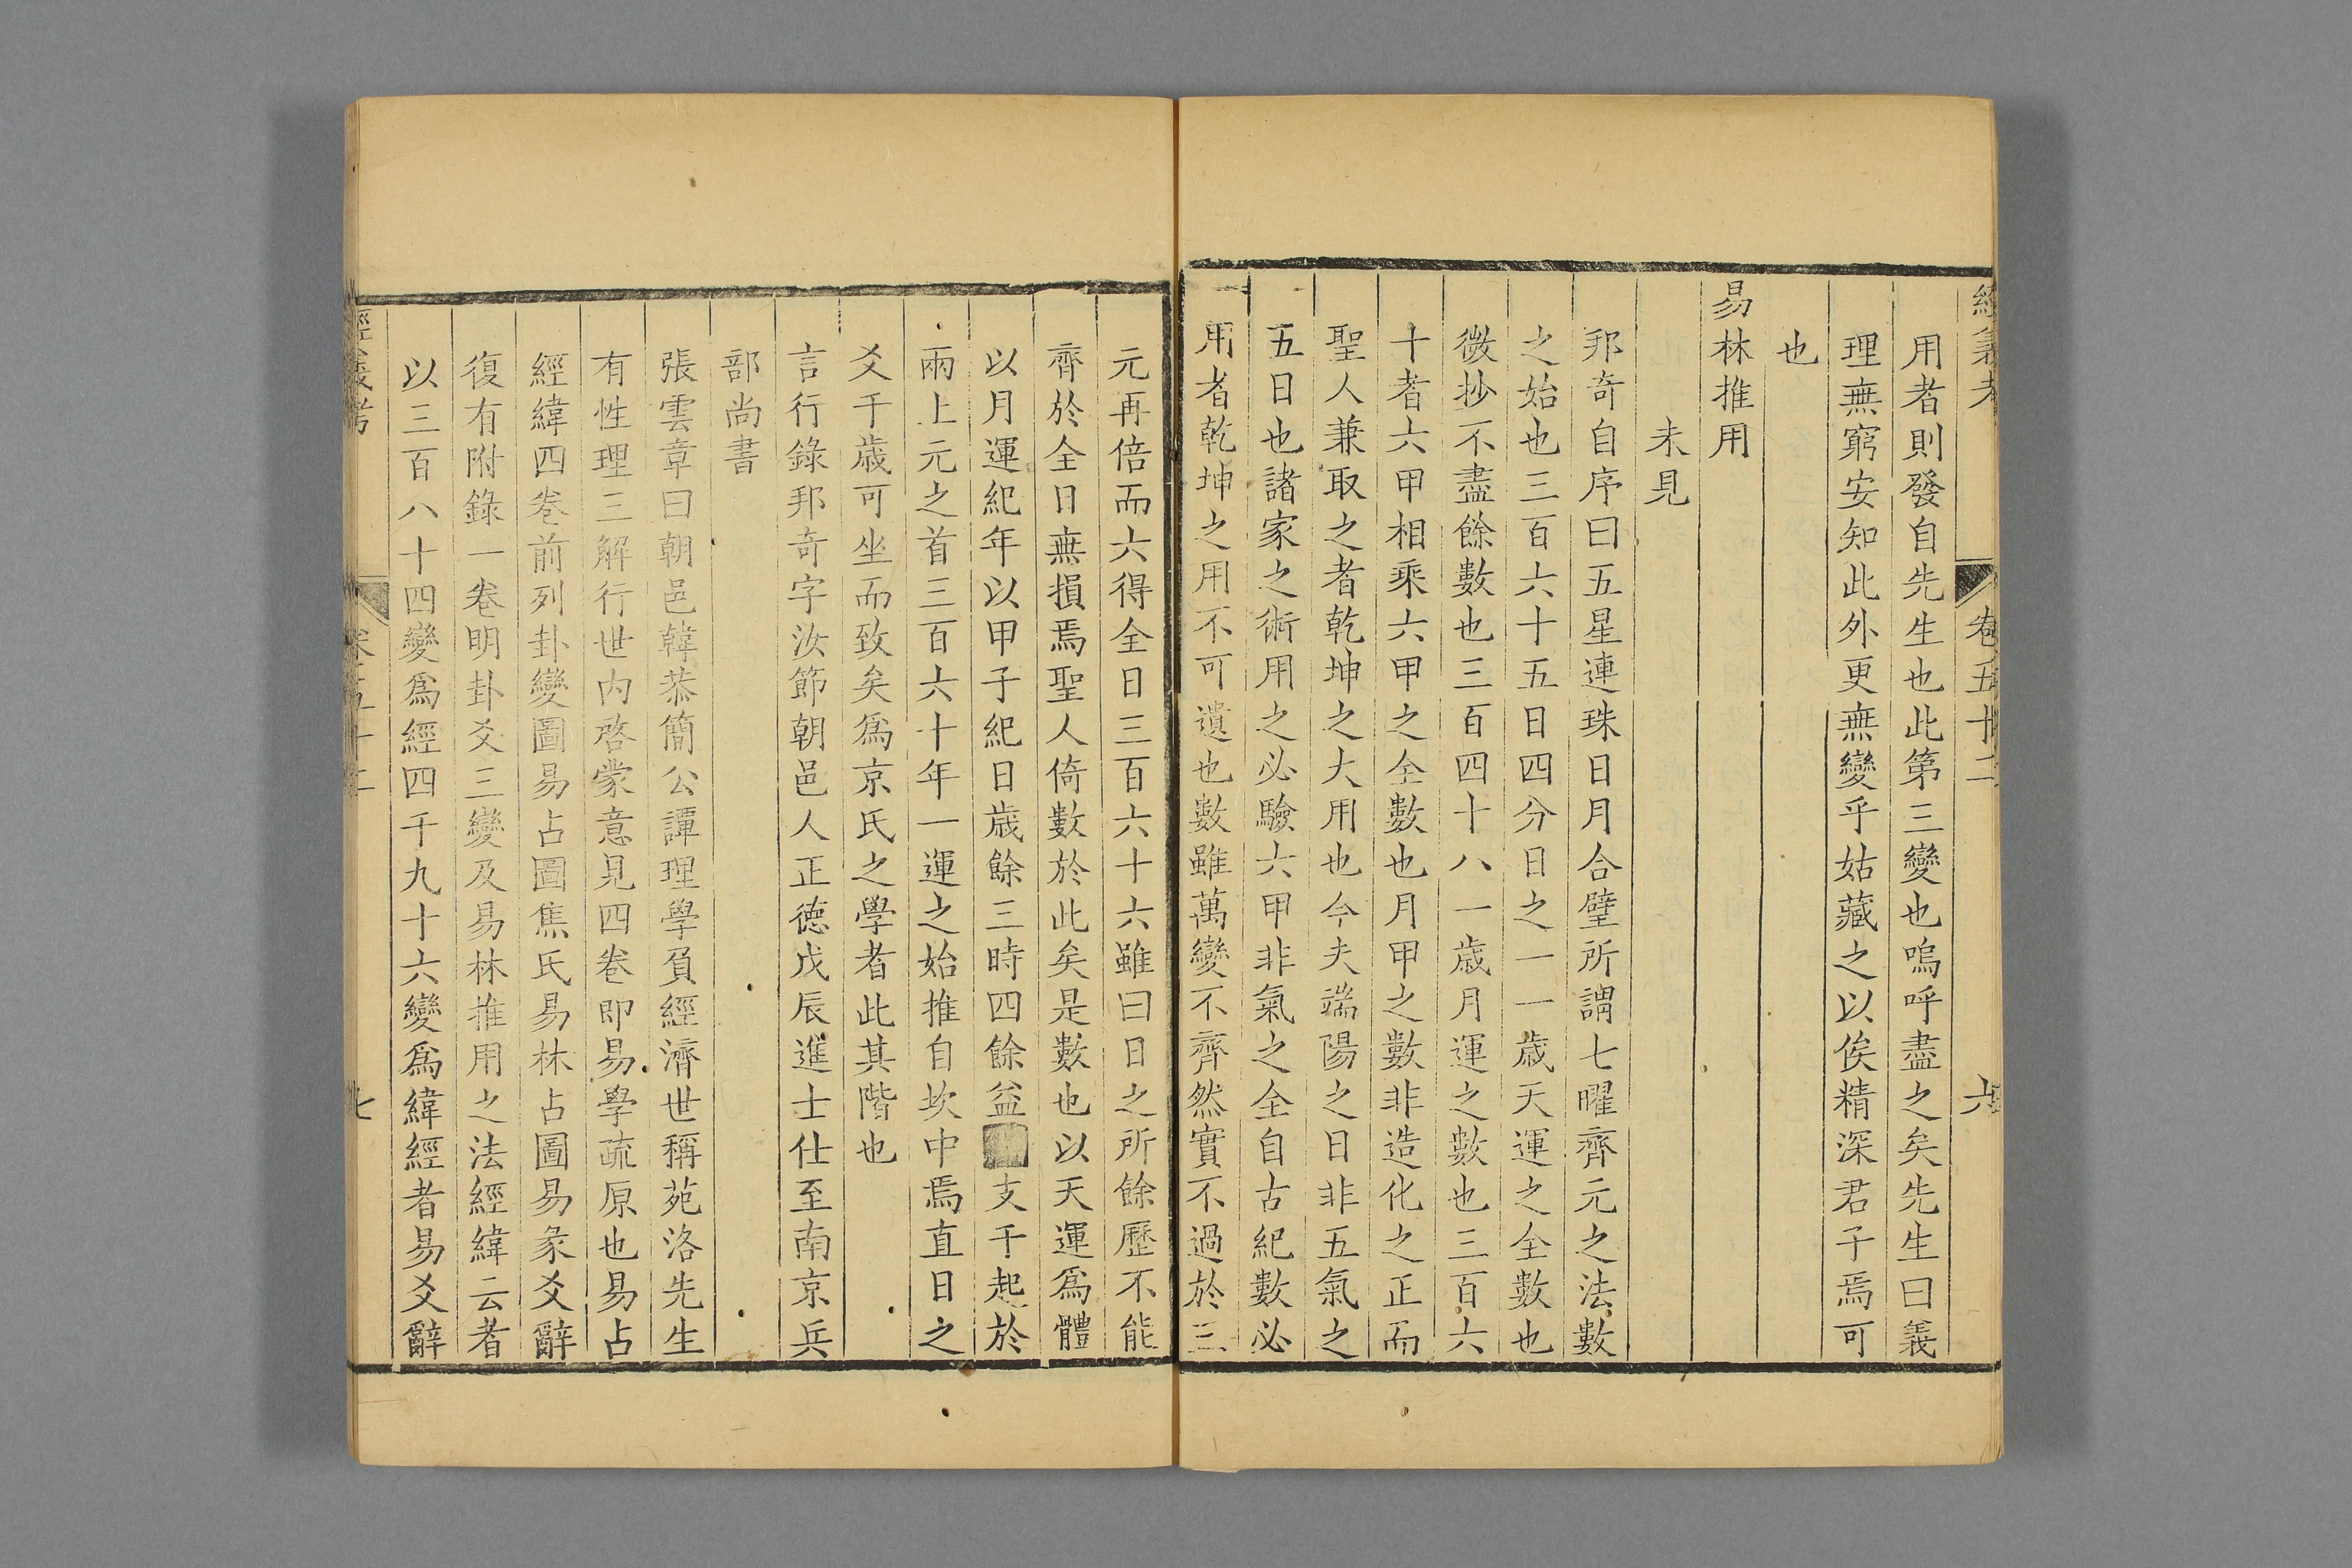 經義考 卷五十二 六
用者則發自先生也此第三變也嗚呼盡之矣先生曰義
理無窮安知此外更無變乎姑藏之以俟精深君子焉可
也
易林推用
未見
邦奇自序曰五星連珠日月合璧所謂七曜齊元之法數
之始也三百六十五日四分日之一一歲天運之全數也
微抄不盡餘數也三百四十八一歲月運之數也三百六
十者六甲相乘六甲之全數也月甲之數非造化之正而
聖人兼取之者乾坤之大用也今夫端陽之日非五氣之
五日也諸家之術用之必驗六甲非氣之全自古紀數必
用者乾坤之用不可遺也數雖萬變不齊然實不過於三
元再倍而六得全日三百六十六雖曰日之所餘歷不能
齊於全日無損焉聖人倚數於此矣是數也以天運爲體
以月運紀年以甲子紀日歲餘三時四餘益支干起於
兩上元之首三百六十年一運之始推自坎中焉直日之
爻千歲可坐而致矣爲京氏之學者此其階也
言行錄邦奇字汝節朝邑人正德戊辰進士仕至南京兵
部尚書
張雲章曰朝邑韓恭簡公譚理學負經濟世稱苑洛先生
有性理三解行世內啓蒙意見四卷即易學疏原也易占
經緯四卷前列卦變圖易占圖焦氏易林占圖易彖爻辭
復有附錄一卷明卦爻三變及易林推用之法經緯云者
以三百八十四變爲經四千九十六變爲緯經者易爻辭
經義考 卷五十二 七